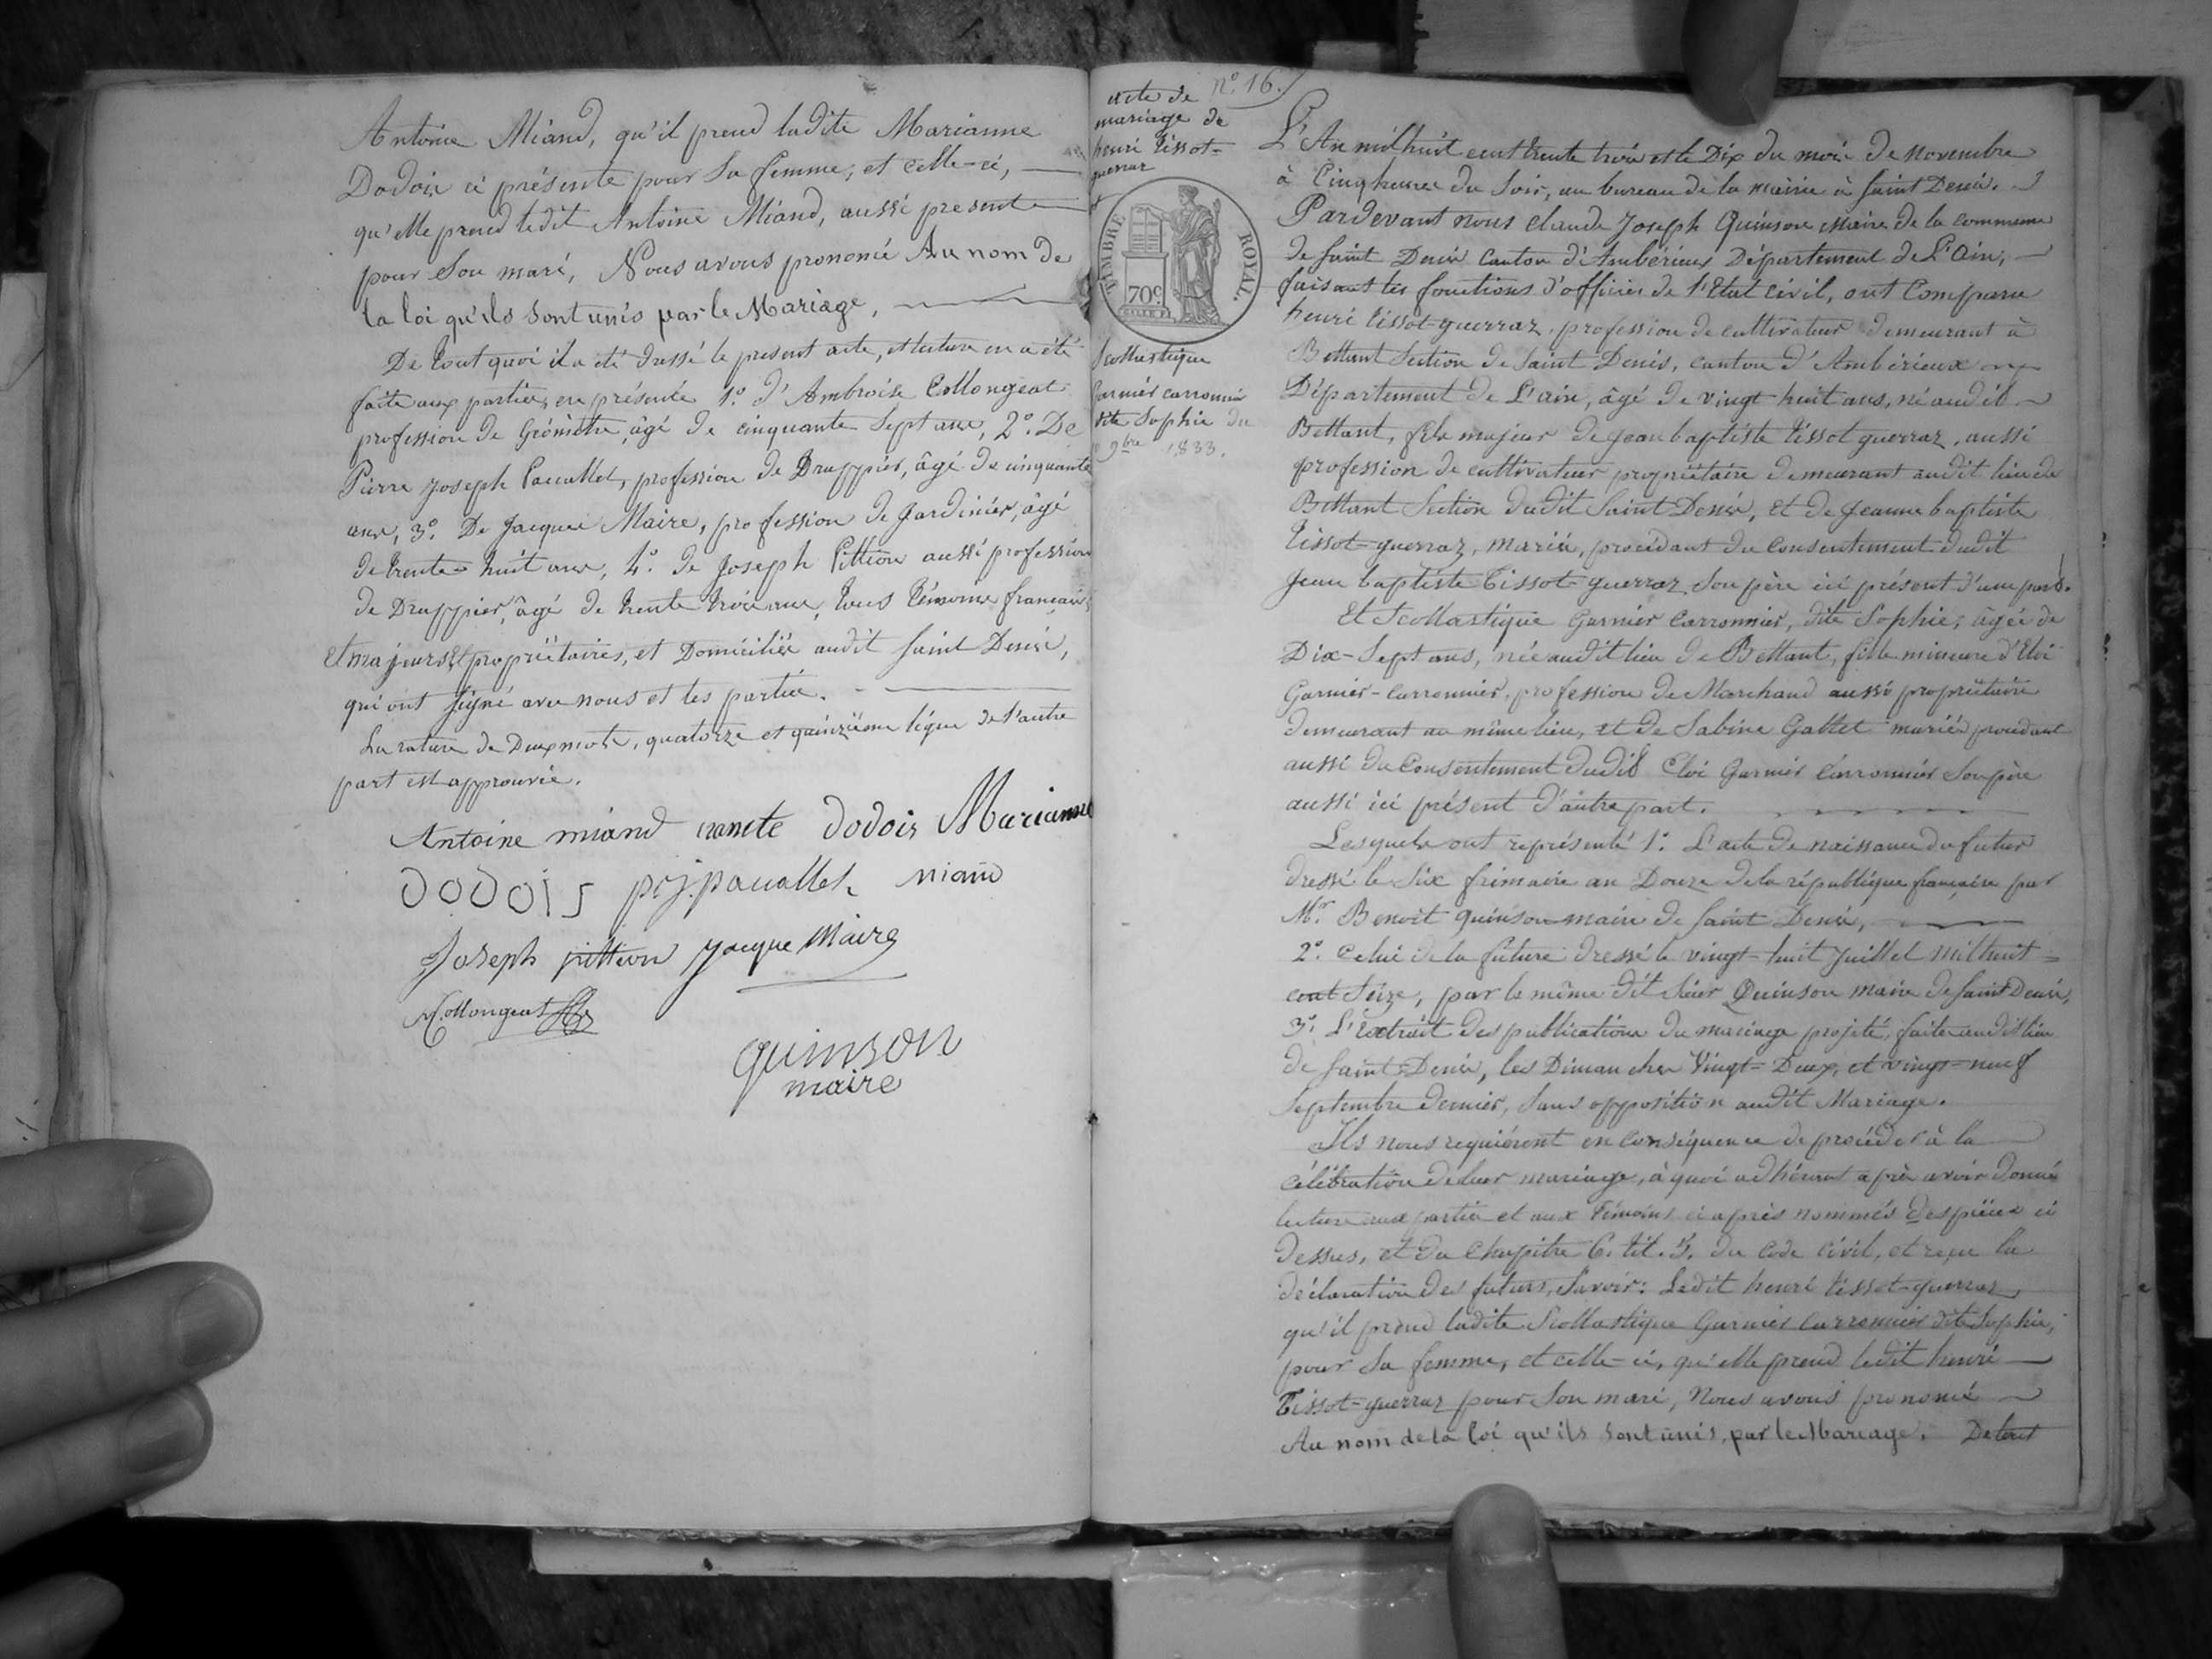 Antoine Miand, qu'il prend ladite Marianne
Dodois ci présente pour sa femme, et celle-ci,
qu'elle prend ledit Antoine Miand, aussi présent
pour son mari, Nous avons prononcé Au nom de
la loi qu'ils sont unis par le Mariage,
De tout quoi il a été dressé le present acte, et lecture en a été
faite aux parties, en présence 1.° d'Ambroise Collongeat
profession de Géomètre, âgé de cinquante sept ans, 2.° De
Pierre Joseph Pacallet, profession de Drappier, âgé de cinquante
ans, 3.° De Jacques Maire, profession de Jardinier, âgé
de trente-huit ans, 4.° de Joseph Pittion aussi profession
de Drappier, âgé de trente trois ans, tous témoins français
et majeurs et propriétaires, et Domiciliés audit Saint Denis,
qui ont signé avec nous et les parties.
La rature de Deux mots, quatorze et quinzième ligne de l'autre
part est approuvée.
Antoine miand dodois Marianne
DODOIS pj. pacallet miand
Joseph pittion Jacque Maire
Collongeat
quinson
maire
N.° 16.
acte de
mariage de
henri tissot-
guerraz
et
TIMBRE ROYAL.
70c
Scollastique
Garnier carronnier
dite Sophie du
9bre 1833.
L'An mil huit cent trente trois et le Dix du mois de novembre
à Cinq heures du Soir, au bureau de la mairie à Saint Denis.
Pardevant nous claude Joseph Quinson Maire de la commune
de Saint Denis Canton d'Ambérieux Département de L'Ain,
faisant les fonctions d'officier de l'Etat civil, ont Comparu
henri tissot-guerraz, profession de cultivateur demeurant à
Bettant Section de Saint Denis, canton d'Ambérieux
Département de L'ain, âgé de vingt-huit ans, né audit
Bettant, fils majeur de Jean baptiste tissot guerraz, aussi
profession de cultivateur propriétaire demeurant audit lieu de
Bettant Section dudit Saint Denis, et de Jeanne baptiste
tissot-guerraz, mariés, procédant du Consentement dudit
Jean baptiste Tissot-guerraz Son père ici présent d'une part.
Et Scollastique Garnier Carronnier, dite Sophie, âgée de
Dix-Sept ans, née audit lieu de Bettant, fille mineure d'Eloi
Garnier-Carronnier, profession de Marchand aussi propriétaire
demeurant au même lieu, et de Sabine Gallet mariés procédant
aussi du Consentement dudit Eloi Garnier Carronnier Son père
aussi ici présent D'autre part.
Lesquels ont représenté 1.° L'acte de naissance du futur
dressé le Six frimaire an Douze de la république française par
Mr. Benoit quinson maire de Saint Denis,
2.° Celui de la future dressé le vingt-huit Juillet mil huit-
cent Seize, par le même dit Sieur Quinson maire de Saint Denis,
3.° L'Extrait des publications du mariage projeté, faites audit lieu
de Saint Denis, les Dimanches Vingt-Deux, et vingt-neuf
Septembre dernier, Sans opposition audit Mariage.
Ils nous requièrent en Conséquence de procéder à la
Célébration de leur mariage, à quoi adhérant après avoir donné
lecture aux parties et aux témoins ci après nommés des pièces ci
dessus, et du Chapitre 6. tit. 5. du Code Civil, et reçu la
déclaration des futurs, Savoir: Ledit henri tissot-guerraz
qu'il prend ladite Scollastique Garnier Carronnier dite Sophie,
pour Sa femme, et celle-ci, qu'elle prend ledit henri
Tissot-guerraz pour Son mari, Nous avons prononcé
Au nom de la loi qu'ils sont unis, par le Mariage. De tout